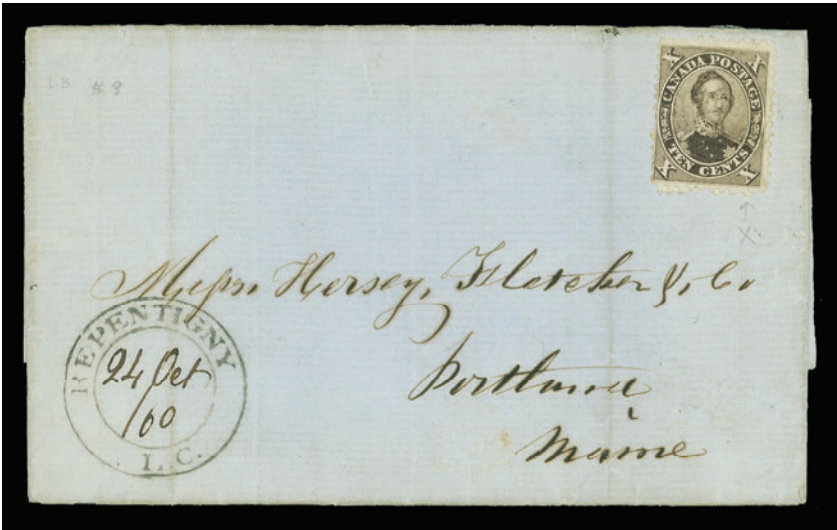 1B #9
X CANADA POSTAGE X
X TEN CENTS X
X
Messrs Hersey, Fletcher & Co
Portland
Maine
REPENTIGNY
24 Oct
/60
L.C.